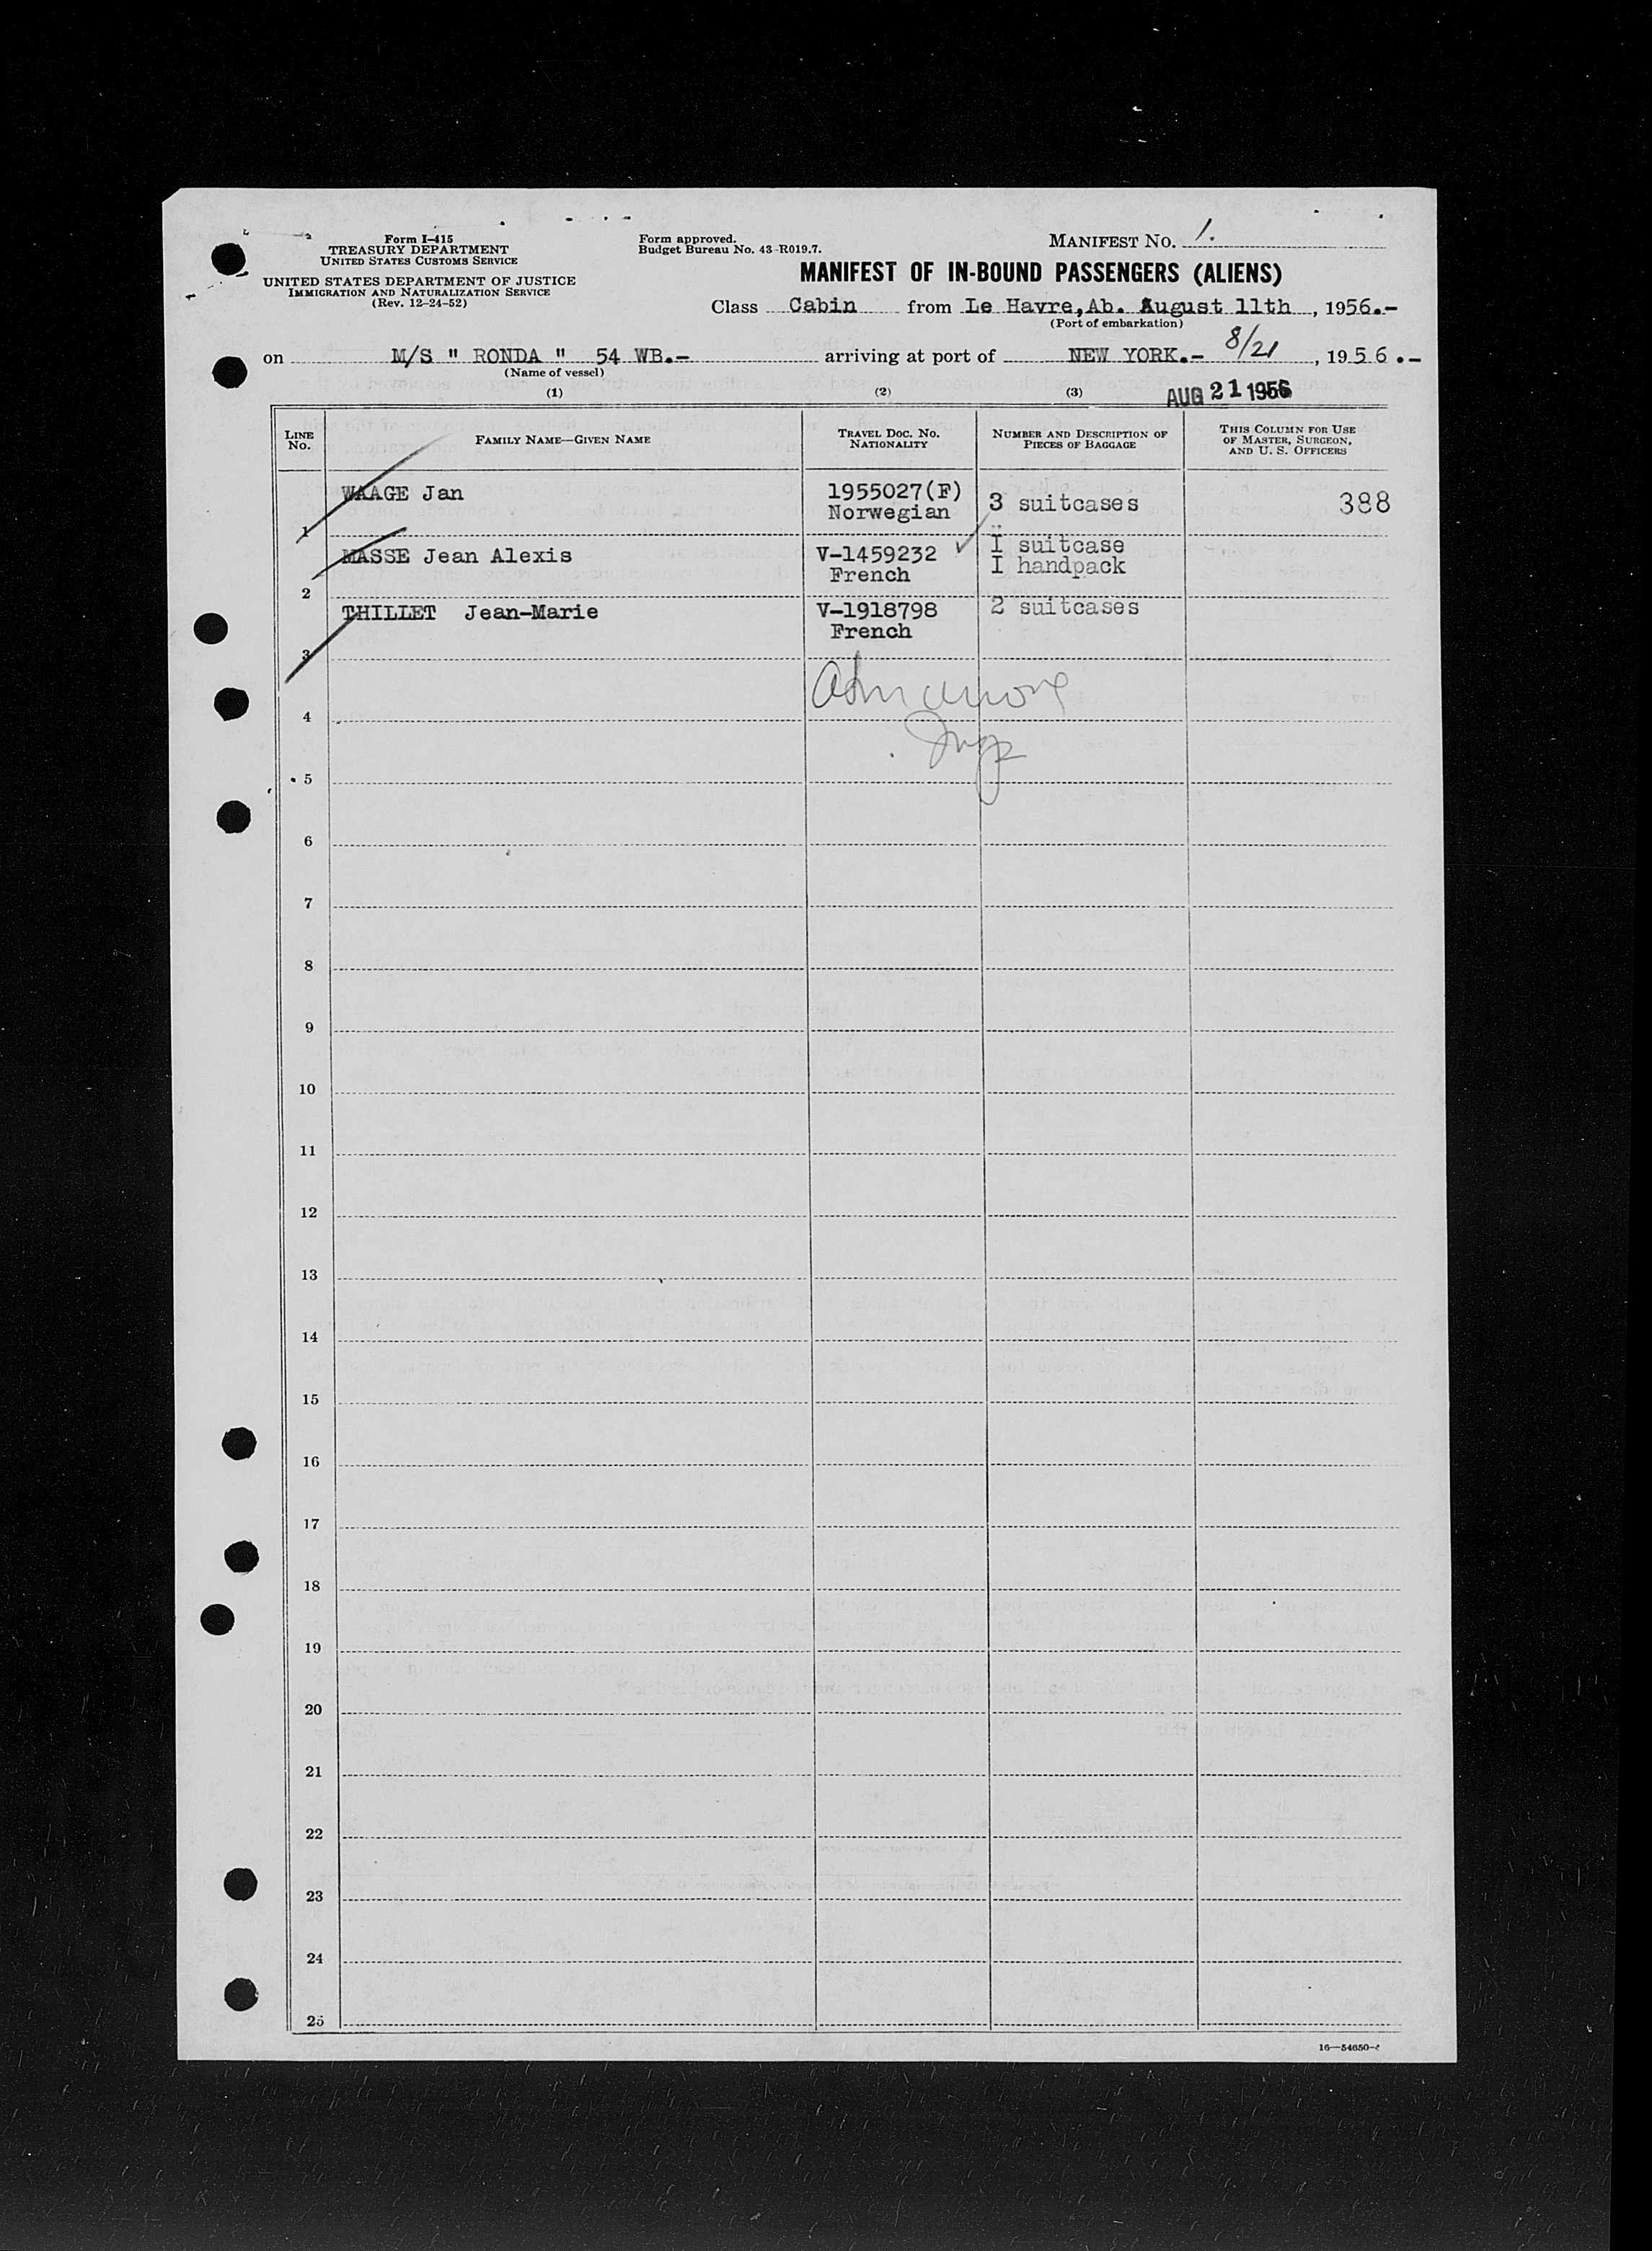 Form I-415
TREASURY DEPARTMENT
UNITED STATES CUSTOMS SERVICE
UNITED STATES DEPARTMENT OF JUSTICE
IMMIGRATION AND NATURALIZATION SERVICE
(Rev. 12-24-52)
Form approved.
Budget Bureau No. 43-R019.7.
MANIFEST NO. 1.
MANIFEST OF IN-BOUND PASSENGERS (ALIENS)
Class Cabin from Le Havre,Ab. August 11th, 1956.-
(Port of embarkation)
on M/S " RONDA " 54 WB.- arriving at port of NEW YORK.- 8/21, 1956.-
(Name of vessel)
(1) (2) (3) AUG 21 1956
LINE NO. FAMILY NAME—GIVEN NAME TRAVEL DOC. NO. NATIONALITY NUMBER AND DESCRIPTION OF PIECES OF BAGGAGE THIS COLUMN FOR USE OF MASTER, SURGEON, AND U. S. OFFICERS
1 WAAGE Jan 1955027(F) Norwegian 3 suitcases 388
2 MASSE Jean Alexis V-1459232 French I suitcase I handpack
3 THILLET Jean-Marie V-1918798 French 2 suitcases
4
5
6
7
8
9
10
11
12
13
14
15
16
17
18
19
20
21
22
23
24
25